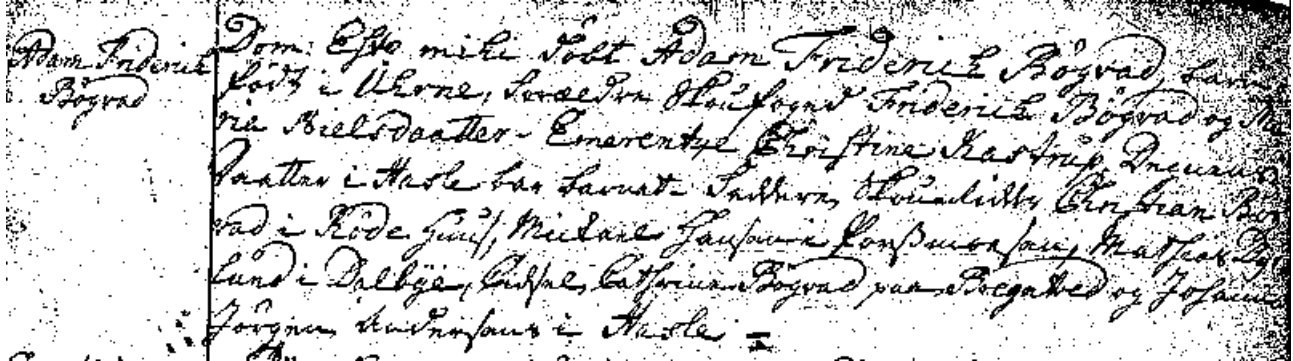 Adam Friderich
Bögvad
Dom: Esto mihi Döbt Adam Friderich Bögvad, barn
født i Uhrne, Forældre Skoufoged Friderich Bögvad og Ma
ria Nielsdaatter - Emerentze Christine Kastrup, Degnens
Daatter i Hasle bar barnet. Faddere, Christian Bög
vad i Röde Huus, Michael Hansen i Mathias
lund i Dalbye, Cathrine Bögvad paa og Johanne
Jörgen Andersens i Hasle